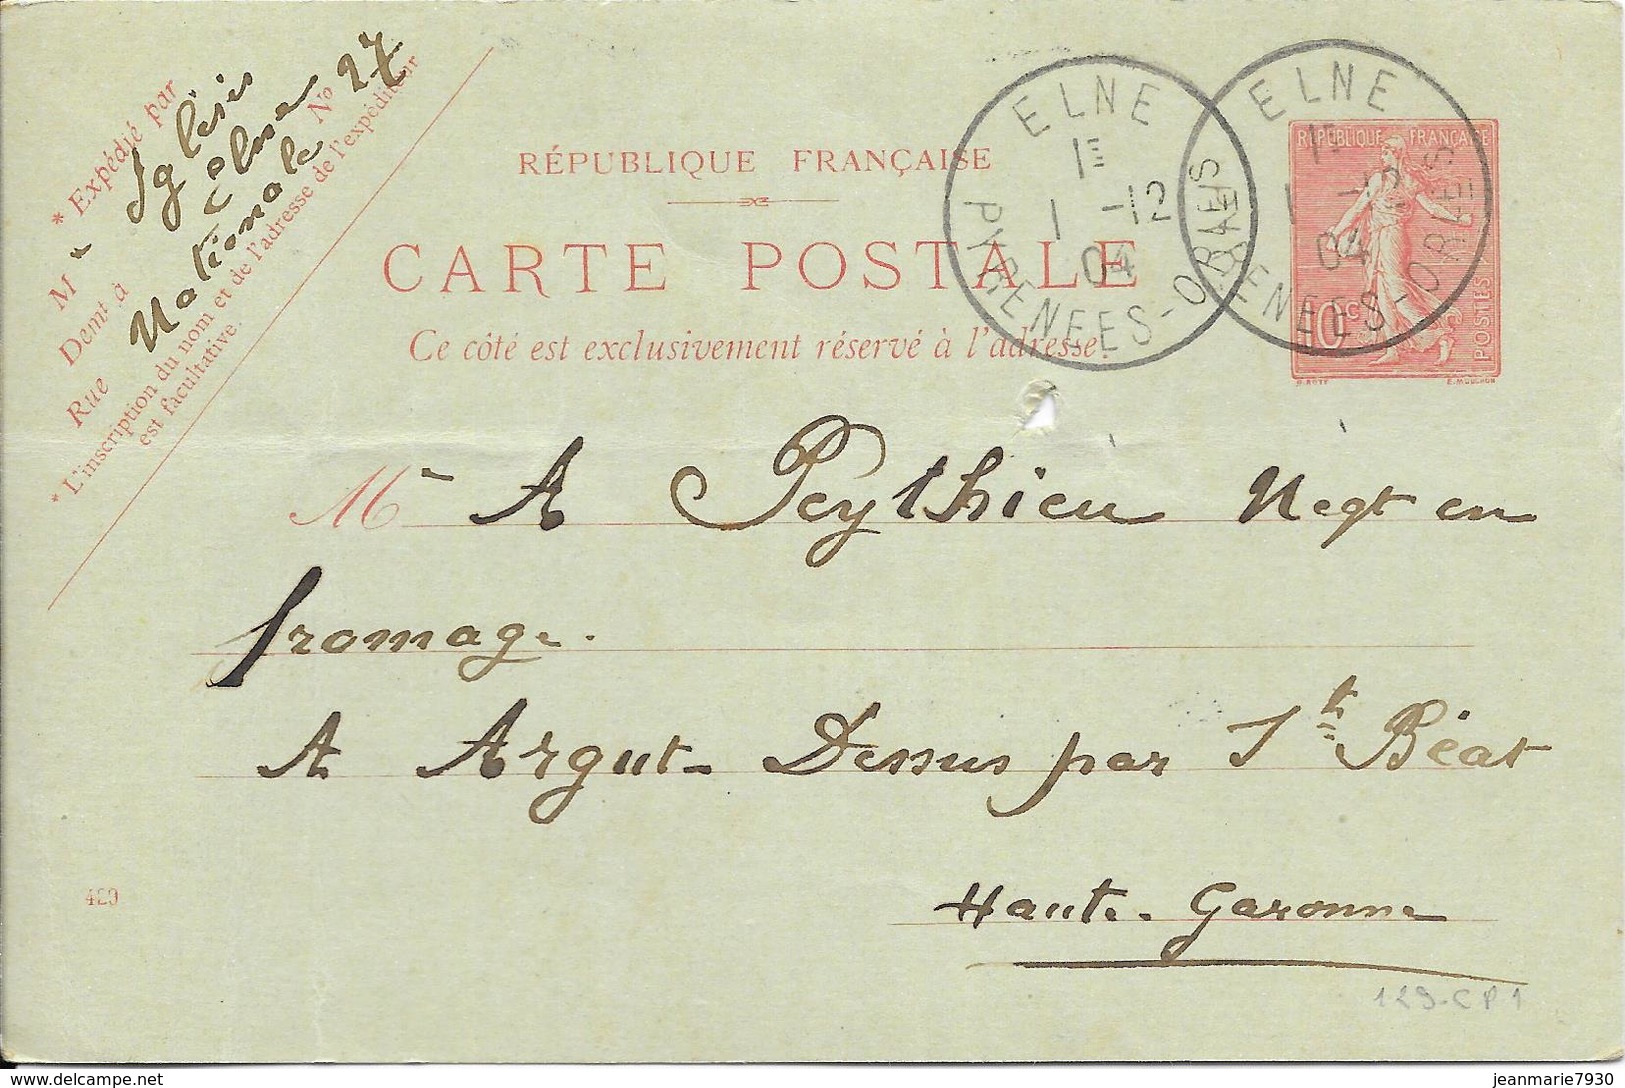 * Expédié par
M r Iglésis
Demt à Elne
Rue Nationale No 27
* L'inscription du nom et de l'adresse de l'expéditeur
est facultative.
RÉPUBLIQUE FRANÇAISE
CARTE POSTALE
Ce côté est exclusivement réservé à l'adresse.
ELNE
1E
1 -12
04
PYRENEES-ORALES
ELNE
1E
1 -12
04
PYRENEES-ORLES
RÉPUBLIQUE FRANÇAISE
10c
POSTES
O. ROTY
E. MOUCHON
Mr A Peythieu Negt en
fromage.
A Argut-Dessus par St Béat
Haute-Garonne
429
129-CP1
delcampe.net
jeanmarie7930